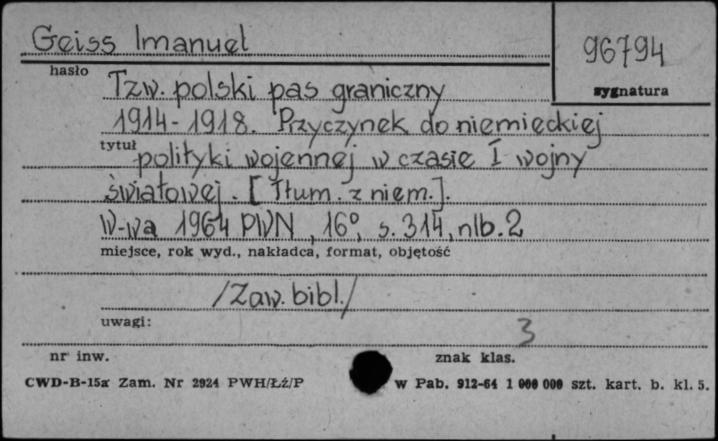 Geiss Imanuel
96794
hasło
sygnatura
Tzw. polski pas graniczny
1914-1918. Przyczynek do niemieckiej
tytuł
polityki wojennej w czasie I wojny
światowej. [Tłum. z niem.].
W-wa 1964 PWN, 16°, s. 314, nlb. 2
miejsce, rok wyd., nakładca, format, objętość
/Zaw. bibl./
uwagi:
3
nr inw.
znak klas.
CWD-B-15a Zam. Nr 2924 PWH/Łź/P w Pab. 912-64 1 000 000 szt. kart. b. kl. 5.